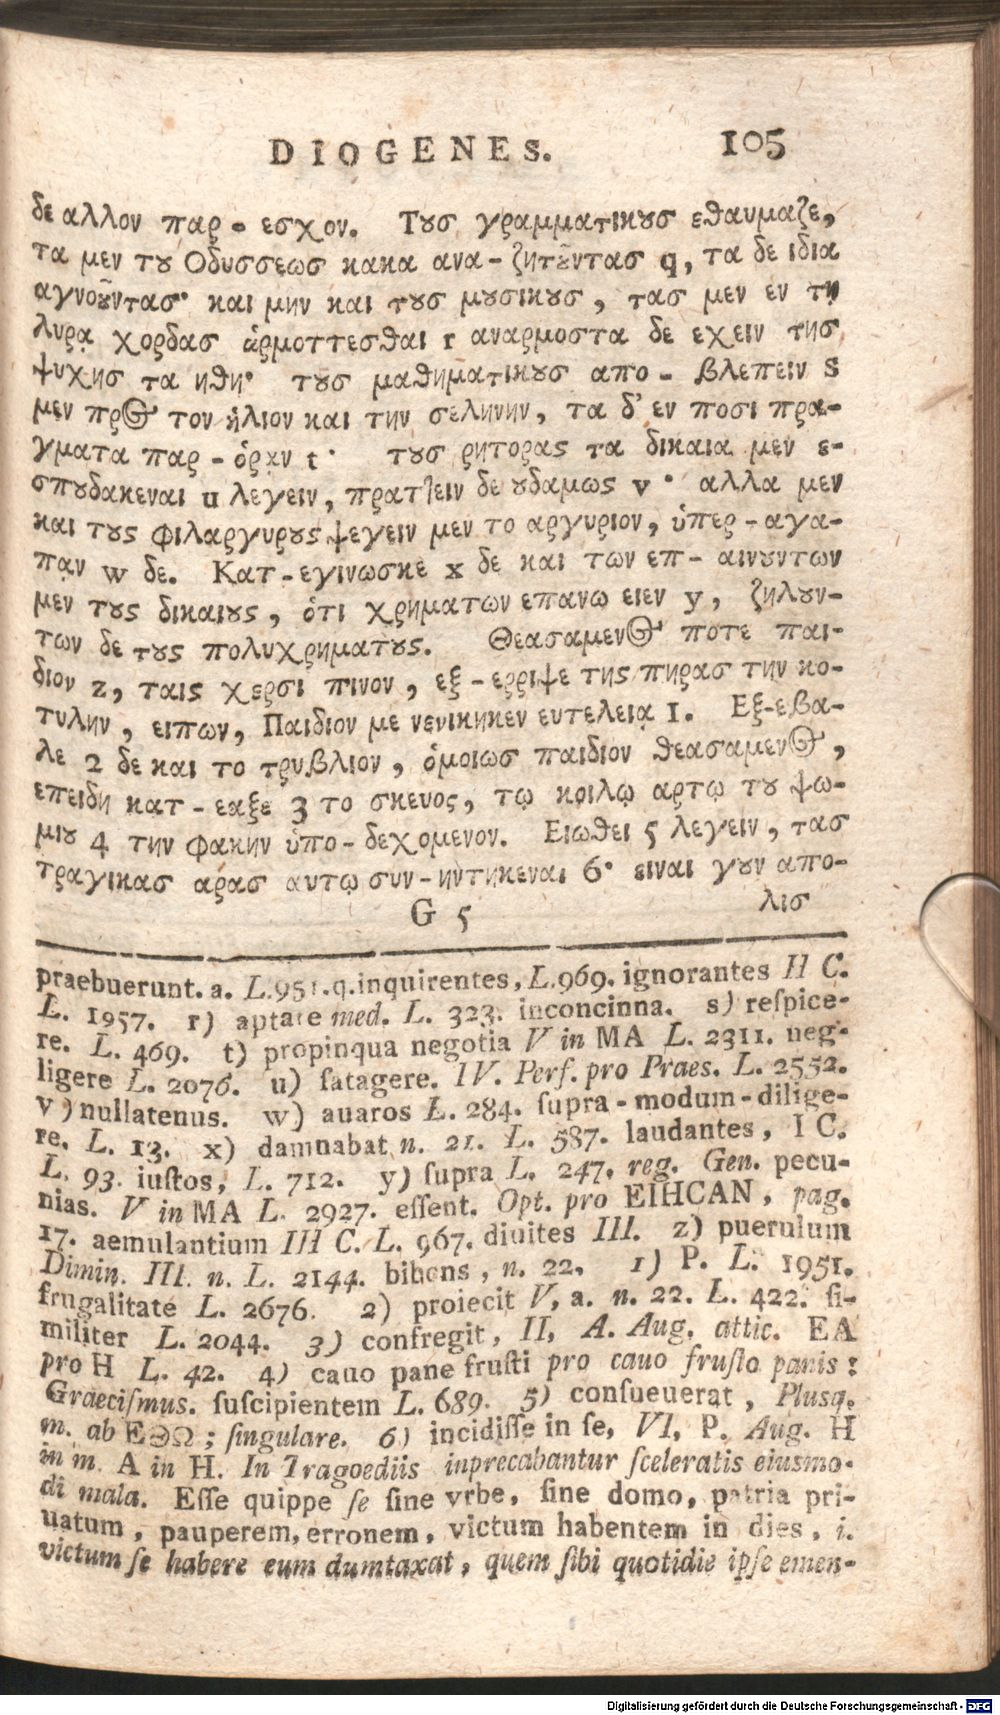 DIOGENES. 105
δε αλλον παρ-εσχον. Τȣσ γραμματικȣσ εθαυμαζε,
τα μεν τȣ Οδυσσεωσ κακα ανα-ζητȣ͂ντασ q, τα δε ιδια
αγνοȣ͂ντασ· και μην και τȣσ μȣσικȣσ, τασ μεν εν τῃ
λυρᾳ χορδασ ἁρμοττεσθαι r αναρμοστα δε εχειν τησ
ψυχησ τα ηθη· τȣσ μαθηματικȣσ απο-βλεπειν S
μεν προς τον ἡλιον και την σεληνην, τα δ' εν ποσι πρα-
γματα παρ-ὁρᾳν t· τȣσ ρητορας τα δικαια μεν ε-
σπȣδακεναι u λεγειν, πραττειν δε ȣδαμως v· αλλα μεν
και τȣς φιλαργυρȣς ψεγειν μεν το αργυριον, ὑπερ-αγα-
πᾳν w δε. Κατ-εγινωσκε x δε και των επ-αινȣντων
μεν τȣς δικαιȣς, ὁτι χρηματων επανω ειεν y, ζηλȣν-
των δε τȣς πολυχρηματȣς. Θεασαμενος ποτε παι-
διον z, ταις χερσι πινον, εξ-ερριψε της πηρασ την κο-
τυλην, ειπων, Παιδιον με νενικηκεν ευτελειᾳ 1. Εξ-εβα-
λε 2 δε και το τρυβλιον, ὁμοιωσ παιδιον θεασαμενος,
επειδη κατ-εαξε 3 το σκευος, τῳ κοιλῳ αρτῳ τȣ ψω-
μιȣ 4 την φακην ὑπο-δεχομενον. Ειωθει 5 λεγειν, τας
τραγικασ αρασ αυτῳ συν-ηντηκεναι 6· ειναι γȣν απο-
G 5 λισ
praebuerunt. a. L. 951. q. inquirentes, L. 969. ignorantes II C.
L. 1957. r) aptate med. L. 323. inconcinna. s) reſpice-
re. L. 469. t) propinqua negotia V in MA L. 2311. neg-
ligere L. 2076. u) ſatagere. IV. Perf. pro Praes. L. 2552.
v) nullatenus. w) auaros L. 284. ſupra-modum-dilige-
re. L. 13. x) damnabat n. 21. L. 587. laudantes, I C.
L. 93. iuſtos, L. 712. y) ſupra L. 247. reg. Gen. pecu-
nias. V in MA L. 2927. eſſent. Opt. pro EIHCAN, pag.
17. aemulantium III C. L. 967. diuites III. z) puerulum
Dimin. III. n. L. 2144. bibens, n. 22. 1) P. L. 1951.
frugalitate L. 2676. 2) proiecit V, a. n. 22. L. 422. ſi-
militer L. 2044. 3) confregit, II, A. Aug. attic. EA
pro H L. 42. 4) cauo pane fruſti pro cauo fruſto panis:
Graeciſmus. ſuſcipientem L. 689. 5) conſueuerat, Plusq.
m. ab ΕΘΩ; ſingulare. 6) incidiſſe in ſe, VI, P. Aug. H
in m. A in H. In Tragoediis inprecabantur ſceleratis eiusmo-
di mala. Eſſe quippe ſe ſine vrbe, ſine domo, patria pri-
uatum, pauperem, erronem, victum habentem in dies, i.
victum ſe habere eum dumtaxat, quem ſibi quotidie ipſe emen-
Digitalisierung gefördert durch die Deutsche Forschungsgemeinschaft - DFG